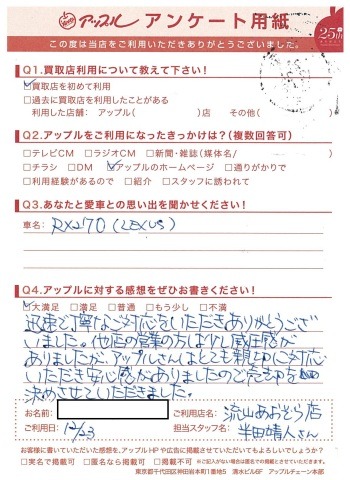 アップル アンケート用紙
25th
この度は当店をご利用いただきありがとうございました。
Q1.買取店利用について教えて下さい！
☑買取店を初めて利用
□過去に買取店を利用したことがある
利用した店舗： アップル（　　　　）店　その他（　　　　）
Q2.アップルをご利用になったきっかけは？（複数回答可）
□テレビCM □ラジオCM □新聞・雑誌（媒体名/　　　　）
□チラシ □DM ☑アップルのホームページ □通りがかりで
□利用経験があるので □紹介 □スタッフに誘われて
Q3.あなたと愛車との思い出を聞かせください！
車名： RX270 (LEXUS)
Q4.アップルに対する感想をぜひお書きください！
☑大満足 □満足 □普通 □もう少し □不満
迅速で丁寧なご対応をいただきありがとうござい
ました。他店の営業の方は少し威圧感が
ありましたが、アップルさんはとても親切に対応
いただき安心感がありましたので売却を
決めさせていただきました。
お名前：
ご利用店名： 流山あおぞら店
ご利用日： 12/23
担当スタッフ名： 半田靖人さん
お客様に書いていただいた感想を、アップルHPや広告に掲載させていただいてもよろしいでしょうか？
□実名で掲載可 □匿名なら掲載可 □掲載不可 ※ご記入がない場合は匿名での掲載とさせていただきます。
東京都千代田区神田岩本町1番地5 清水ビル8F アップルチェーン本部